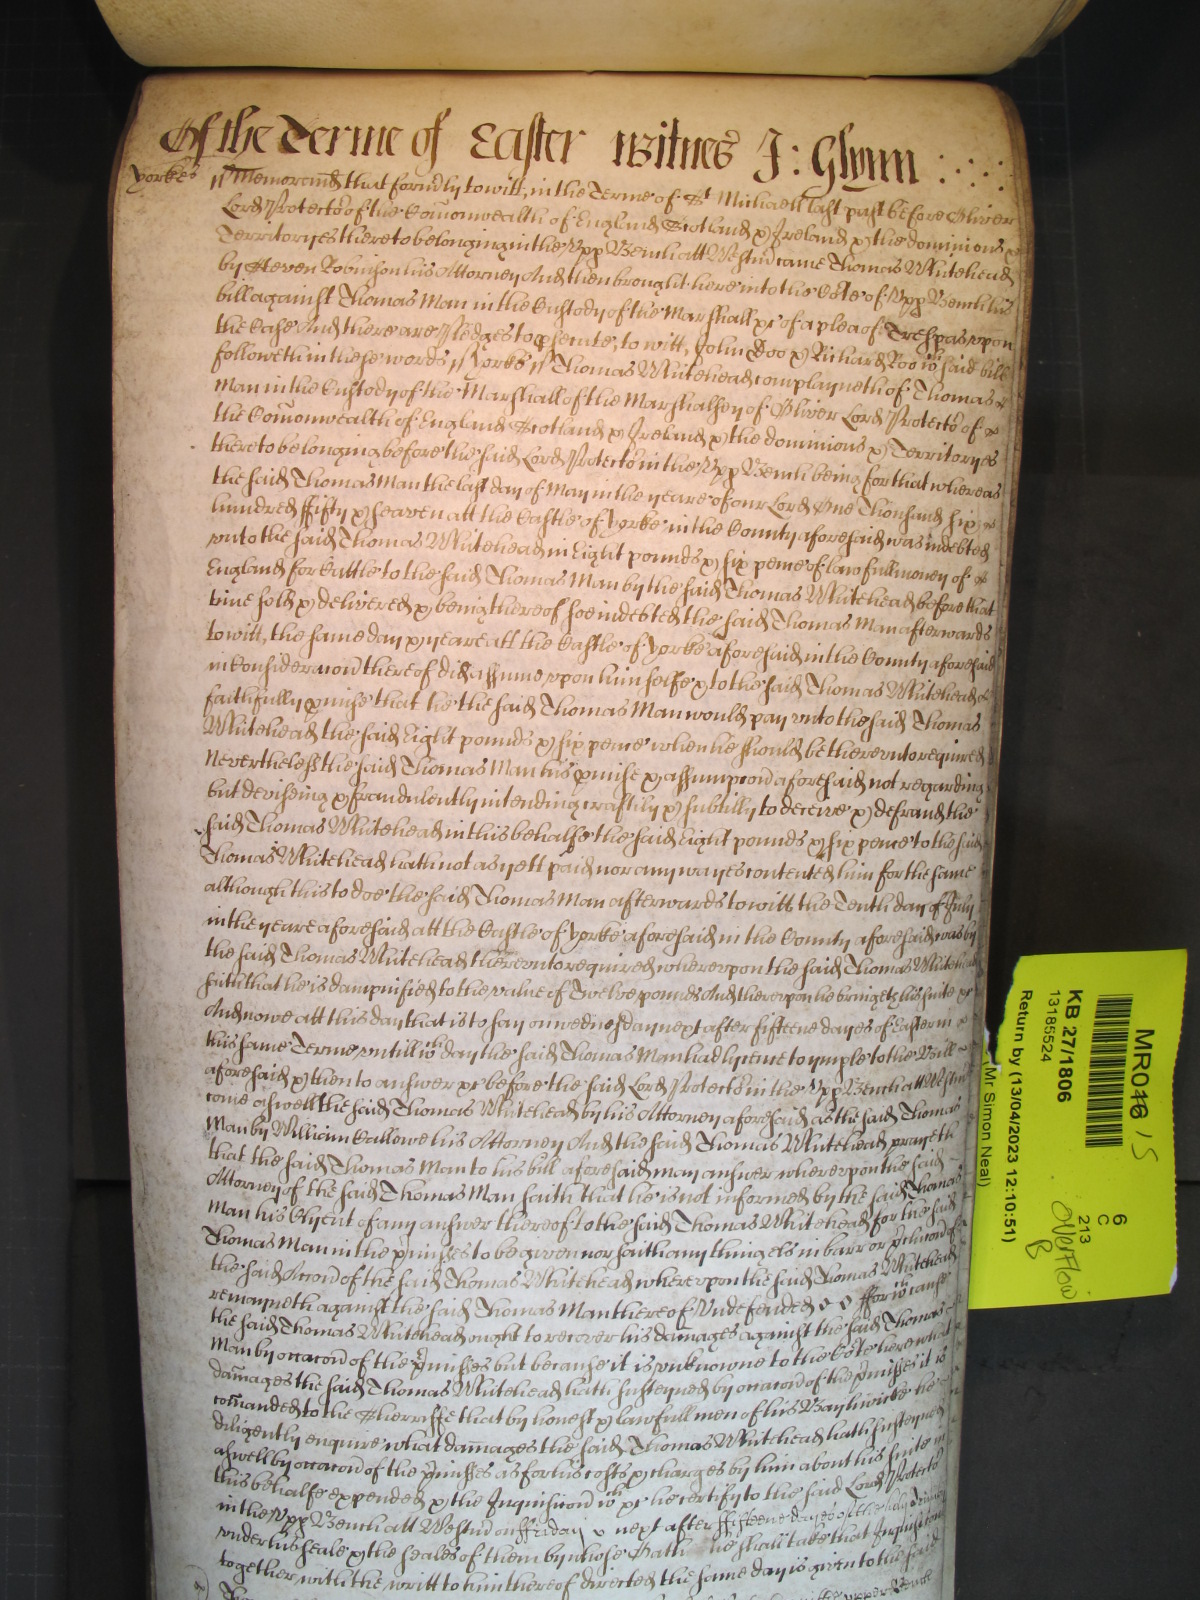 Of the Terme of Easter Witnes J: Glynn
Yorke ss Memorand that formerly to witt, in the Terme of St Michaell last past before Oliver
Lord Protector of the Comonwealth of England Scotland & Ireland & the dominions &
Territoryes thereto belonging in the Upp Bench att Westm came Thomas Whitehead
by Steven Robinson his Attorney And then brought here into the Cote of Upp Bench his
bill against Thomas Man in the Custody of the Marshall &c of a plea of Trespas upon
the Case And there are Pledges to psecute, to witt, John Doo & Richard Roo wch said bill
followeth in these words ss Yorke ss Thomas Whitehead complayneth of Thomas
Man in the Custody of the Marshall of the Marshalsey of Oliver Lord Protector of
the Comonwealth of England Scotland & Ireland & the dominions & Territoryes
thereto belonging before the said Lord Protector in the Upp Bench being for that whereas
the said Thomas Man the last day of May in the yeare of our Lord One Thousand six
hundred fifty & seaven att the Castle of Yorke in the County aforesaid was indebted
unto the said Thomas Whitehead in Eight pounds & six pence of lawfull money of
England for Cattle to the said Thomas Man by the said Thomas Whitehead before that
time sold & delivered & being thereof soe indebted the said Thomas Man afterwards
to witt, the same day & yeare att the Castle of Yorke aforesaid in the County aforesaid
in Consideracon thereof did assume upon himselfe & to the said Thomas Whitehead
faithfully pmise that he the said Thomas Man would pay unto the said Thomas
Whitehead the said Eight pounds & six pence when he should be thereunto required
Neverthelesse the said Thomas Man his pmise & assumpcon aforesaid not regarding
but deviseing & fraudulently intending craftily & subtilly to deceive & defraud the
said Thomas Whitehead in this behalfe the said Eight pounds & six pence to the said
Thomas Whitehead hath not as yett paid nor any wayes contented him for the same
although this to doe the said Thomas Man afterwards to witt the Tenth day of July
in the yeare aforesaid att the Castle of Yorke aforesaid in the County aforesaid was by
the said Thomas Whitehead thereunto required whereupon the said Thomas Whitehead
saith that he is dampnified to the value of Twelve pounds And thereupon he bringeth his suite &c
And nowe att this day that is to say on wednesday next after fifteene dayes of Easter in
this same Terme untill wch day the said Thomas Man had lycence to imple to the Bill
aforesaid & then to answer &c before the said Lord Protector in the Upp Bench att Westm
come aswell the said Thomas Whitehead by his Attorney aforesaid as the said Thomas
Man by William Gallowe his Attorney And the said Thomas Whitehead prayeth
that the said Thomas Man to his bill aforesaid may answer whereupon the said
Attorney of the said Thomas Man saith that he is not informed by the said Thomas
Man his Clyent of any answer thereof to the said Thomas Whitehead for the said
Thomas Man in the pmisses to be given nor saith any thing els in barr or pclusion of
the said Accon of the said Thomas Whitehead whereupon the said Thomas Whitehead
remayneth against the said Thomas Man thereof Undefended for wch cause
the said Thomas Whitehead ought to recover his damages against the said Thomas
Man by occacon of the pmisses but because it is unknowne to the Cote here what
damages the said Thomas Whitehead hath susteyned by occacon of the pmisses it is
comanded to the Sherriffe that by honest & lawfull men of his Baylywicke he
diligently enquire what damages the said Thomas Whitehead hath susteyned
aswell by occacon of the pmisses as for his costs & charges by him about his suite in
this behalfe expended & the Inquisicon wch &c he certify to the said Lord Protector
in the Upp Bench att Westm on ffriday next after fifteene dayes of the holy Trinity
under his seale & the seales of them by whose Oath he shall take that Inquisicon
together with the writt to him thereof directed the same day is given to the said
MR046 15
KB 27/1806
13185524
Return by (13/04/2023 12:10:51)
(Mr Simon Neal)
6
C
213
Overflow
B